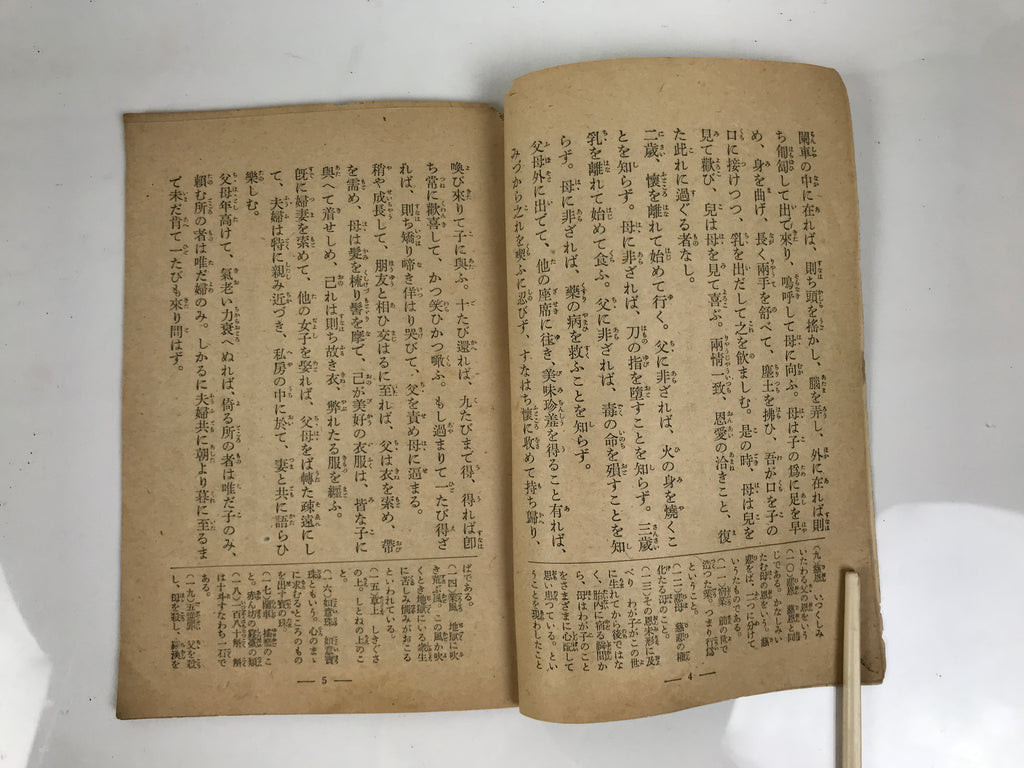 闌車の中に在れば、則ち頭を搖かし、腦を弄し、外に在れば則
ち匍匐して出で來り、嗚呼して母に向ふ。母は子の爲に足を早
め、身を曲げ、長く兩手を舒べて、塵土を拂ひ、吾が口を子の
口に接けつつ、乳を出だして之を飲ましむ。是の時、母は兒を
見て歡び、兒は母を見て喜ぶ。兩情一致、恩愛の洽きこと、復
た此れに過ぐる者なし。
二歳、懷を離れて始めて行く。父に非ざれば、火の身を燒くこ
とを知らず。母に非ざれば、刀の指を墮すことを知らず。三歳
乳を離れて始めて食ふ。父に非ざれば、毒の命を殞すことを知
らず。母に非ざれば、藥の病を救ふことを知らず。
父母外に出でて、他の座席に往き、美味珍羞を得ること有れば、
みづから之れを喫ふに忍びず、すなはち懷に收めて持ち歸り、
(九)慈恩 いつくしみ
いたわる父の恩をいう
(一〇)悲恩 慈恩と同
じである。かなしみい
たむ母の恩をいう。慈
悲を二つに分けて
いうたものである。
(一一)宿業 前の世で
造つた業、つまり行爲
ということ。
(一二)悲母 慈悲の權
化たる母のこと。
(一三)その恩未形に及
べり わが子がこの世
に生れてから後ではな
く、胎内に宿る瞬間か
ら、母はわが子のこと
をさまざまに心配して
思い思つている。とい
うことを現わしたこと
— 4 —
喚び來りて子に與ふ。十たび還れば、九たびまで得、得れば卽
ち常に歡喜して、かつ笑ひかつ噉ふ。もし過まりて一たび得ざ
れば、則ち矯り啼き佯はり哭びて、父を責め母に逼まる。
稍や成長して、朋友と相ひ交はるに至れば、父は衣を索め、帶
を需め、母は髮を梳り髻を摩で、己が美好の衣服は、皆な子に
與へて着せしめ、己れは則ち故き衣、弊れたる服を纏ふ。
旣に婦妻を索めて、他の女子を娶れば、父母をば轉た疎遠にし
て、夫婦は特に親み近づき、私房の中に於て、妻と共に語らひ
樂しむ。
父母年高けて、氣老い力衰へぬれば、倚る所の者は唯だ子のみ、
賴む所の者は唯だ婦のみ。しかるに夫婦共に朝より暮に至るま
で未だ肯へて一たびも來り問はず。
ばである。
(一四)業風 地獄に吹
き荒ぶ風。この風が吹
くとき地獄にいる衆生
に苦しみ惱みがおこる
といわれている。
(一五)草上 しきぐさ
の上。しとねの上のこ
と。
(一六)如意珠 如意寶
珠ともいう。心のまま
に求むるところのもの
を出す寶の珠。
(一七)闌車 搖籃のこ
と。赤ん坊の寢臺の類
(一八)一百八十斛 斛
は十斗すなわち一石で
ある。
(一九)五逆罪 父を殺
し、母を殺し、羅漢を
— 5 —